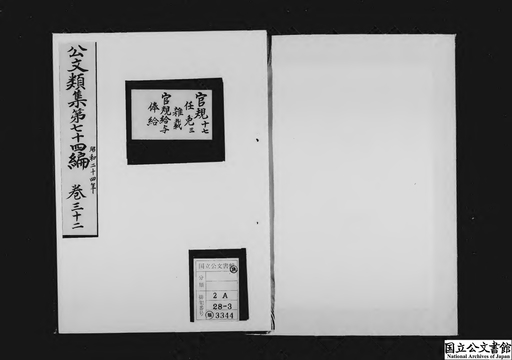 公文類集第七十四編 昭和二十四年 巻三十二
官規十七
任免三
雑載
官規給与
俸給
国立公文書館
分類
2A
28-3
3344
国立公文書館
National Archives of Japan